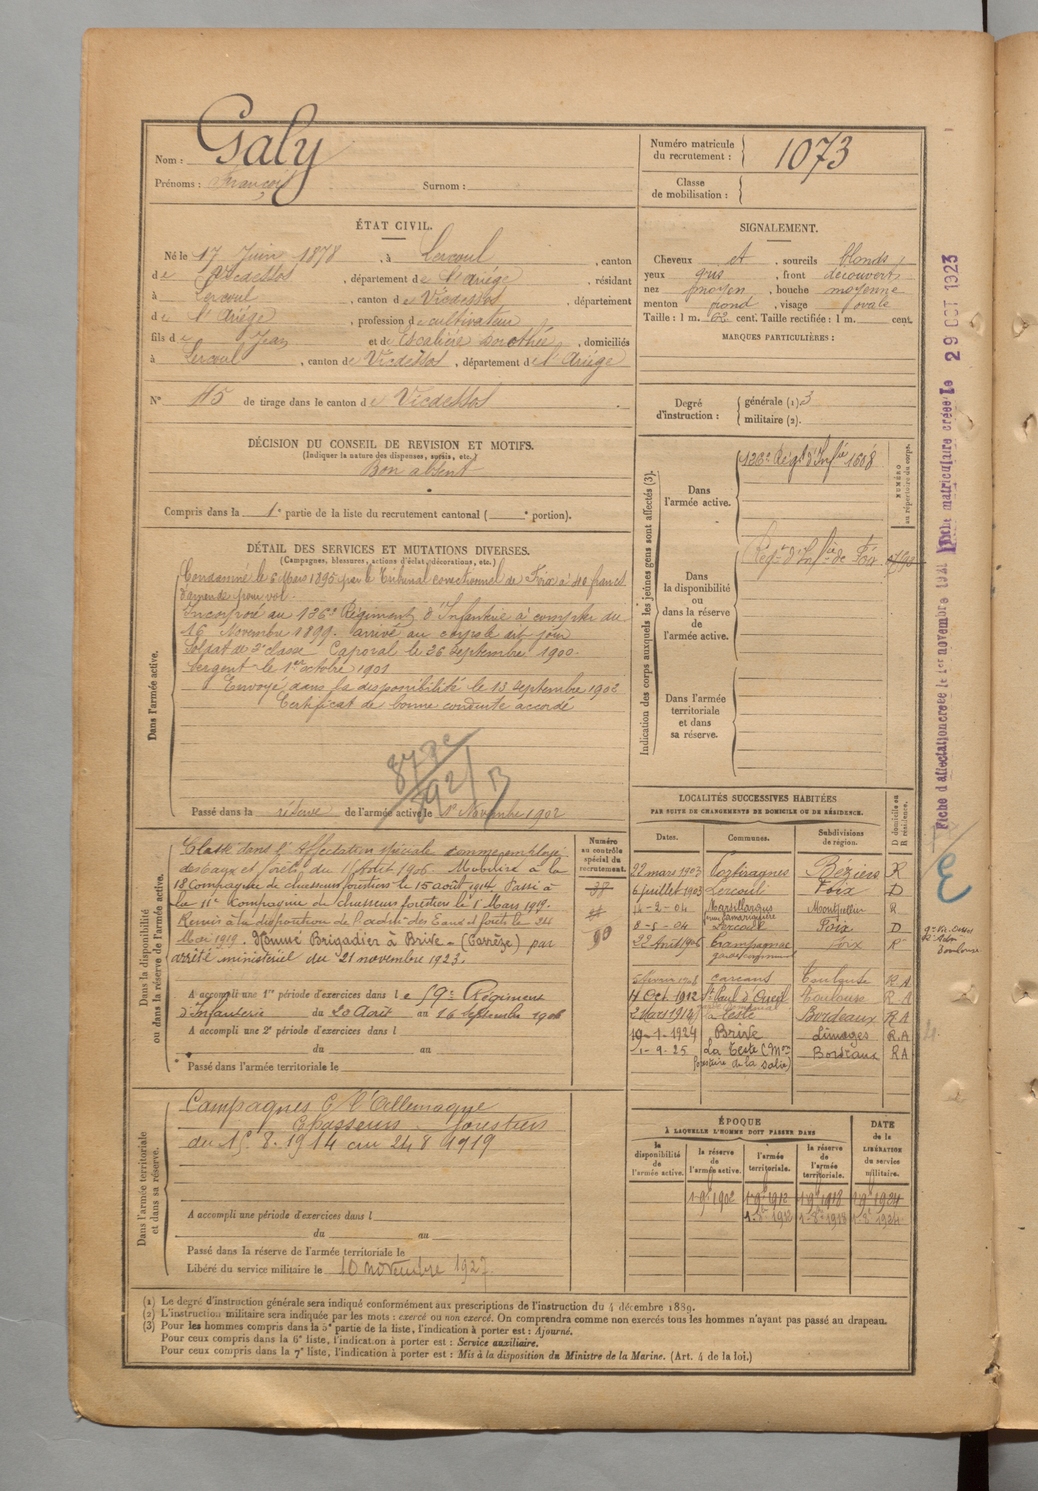 Nom : Galy
Prénoms : François Surnom :
Numéro matricule du recrutement : 1073
Classe de mobilisation :
ÉTAT CIVIL.
Né le 17 Juin 1878, à Lercoul, canton
de Vicdessos, département de l'Ariége, résidant
à Lercoul, canton de Vicdessos, département
de l'Ariége, profession de cultivateur
fils de Jean et de Escalière Dorothée, domiciliés
à Lercoul, canton de Vicdessos, département de l'Ariége
N° 45 de tirage dans le canton de Vicdessos
SIGNALEMENT.
Cheveux et, sourcils blonds
yeux gris, front découvert
nez moyen, bouche moyenne
menton rond, visage ovale
Taille : 1 m. 62 cent. Taille rectifiée : 1 m. cent.
MARQUES PARTICULIÈRES :
Degré d'instruction : générale (1) 3
militaire (2).
DÉCISION DU CONSEIL DE REVISION ET MOTIFS.
(Indiquer la nature des dispenses, sursis, etc.)
Bon absent
Compris dans la 1e partie de la liste du recrutement cantonal ( e portion).
DÉTAIL DES SERVICES ET MUTATIONS DIVERSES.
(Campagnes, blessures, actions d'éclat, décorations, etc.)
Dans l'armée active.
Condamné le 6 Mars 1895 par le Tribunal correctionnel de Foix à 40 francs
d'amende pour vol.
Incorporé au 126e Régiment d'Infanterie à compter du
16 Novembre 1899. arrivé au corps le dit jour
Soldat de 2e classe. Caporal le 26 Septembre 1900.
Sergent le 1er octobre 1901
Envoyé dans la disponibilité le 13 Septembre 1902
Certificat de bonne conduite accordé
Passé dans la réserve de l'armée active le 1er Novembre 1902
Indication des corps auxquels les jeunes gens sont affectés (3).
NUMÉRO au répertoire du corps.
Dans l'armée active.
126e Régt d'Infie 1608
Dans la disponibilité ou dans la réserve de l'armée active.
Régt d'Infie de Foix
Dans l'armée territoriale et dans sa réserve.
Dans la disponibilité ou dans la réserve de l'armée active.
Numéro au contrôle spécial du recrutement.
Classé dans l'Affectation spéciale comme employé
des eaux et forêts du 1 Août 1906. Mobilisé à la
18 Compagnie de chasseurs forestiers le 15 août 1914. Passé à
la 11e Compagnie du Chasseurs forestiers le 1 Mars 1919.
Remis à la disposition de l'adtn des Eaux et forêts le 24
Mai 1919. Nommé Brigadier à Brive - (Corrèze) par
arrêté ministériel du 21 novembre 1923.
A accompli une 1re période d'exercices dans le 59e Régiment
d'Infanterie du 20 Août au 16 Septembre 1906
A accompli une 2e période d'exercices dans l
du au
Passé dans l'armée territoriale le
LOCALITÉS SUCCESSIVES HABITÉES
PAR SUITE DE CHANGEMENTS DE DOMICILE OU DE RÉSIDENCE.
Dates. Communes. Subdivisions de région. D domicile ou R résidence.
22 mars 1903 Portiragnes Béziers R
6 juillet 1903 Lercoul Foix D
14-2-04 Marsillargues Montpellier R
8-5-04 Lercoul Foix D
22 Août 1906 Campagnac Foix R
5 février 1908 Carcans Toulouse R A
4 Oct 1912 Toulouse R A
2 Mars 1919 La Teste Bordeaux R A
19-1-1924 Brive Limoges R.A
1-9-25 La Teste (Mon forestière de la Salie) Bordeaux RA
Dans l'armée territoriale et dans sa réserve.
Campagnes C/ l'Allemagne
Chasseurs forestiers
du 15.8.1914 au 24 8 1919
A accompli une période d'exercices dans l
du au
Passé dans la réserve de l'armée territoriale le
Libéré du service militaire le 10 novembre 1927
ÉPOQUE
À LAQUELLE L'HOMME DOIT PASSER DANS
la disponibilité de l'armée active. la réserve de l'armée active. l'armée territoriale. la réserve de l'armée territoriale. DATE de la LIBÉRATION du service militaire.
1-9bre 1902 1-9bre 1912 1-9bre 1918 1-9bre 1924
(1) Le degré d'instruction générale sera indiqué conformément aux prescriptions de l'instruction du 4 décembre 1889.
(2) L'instruction militaire sera indiquée par les mots : exercé ou non exercé. On comprendra comme non exercés tous les hommes n'ayant pas passé au drapeau.
(3) Pour les hommes compris dans la 5e partie de la liste, l'indication à porter est : Ajourné.
Pour ceux compris dans la 6e liste, l'indication à porter est : Service auxiliaire.
Pour ceux compris dans la 7e liste, l'indication à porter est : Mis à la disposition du Ministre de la Marine. (Art. 4 de la loi.)
Fiche d'affectation créée le 1er novembre 1921 Fiche matriculaire créée le 29 OCT 1923